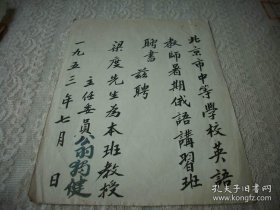 北京市中等學校英語
教師暑期俄語講習班
聘書 茲聘
梁度先生為本班教授
主任委員翁獨健
一九五三年七月 日
孔夫子旧书网